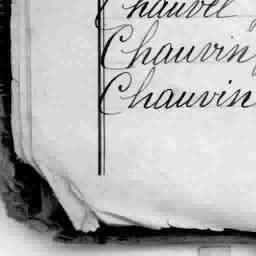 Chauvel
Chauvin
Chauvin